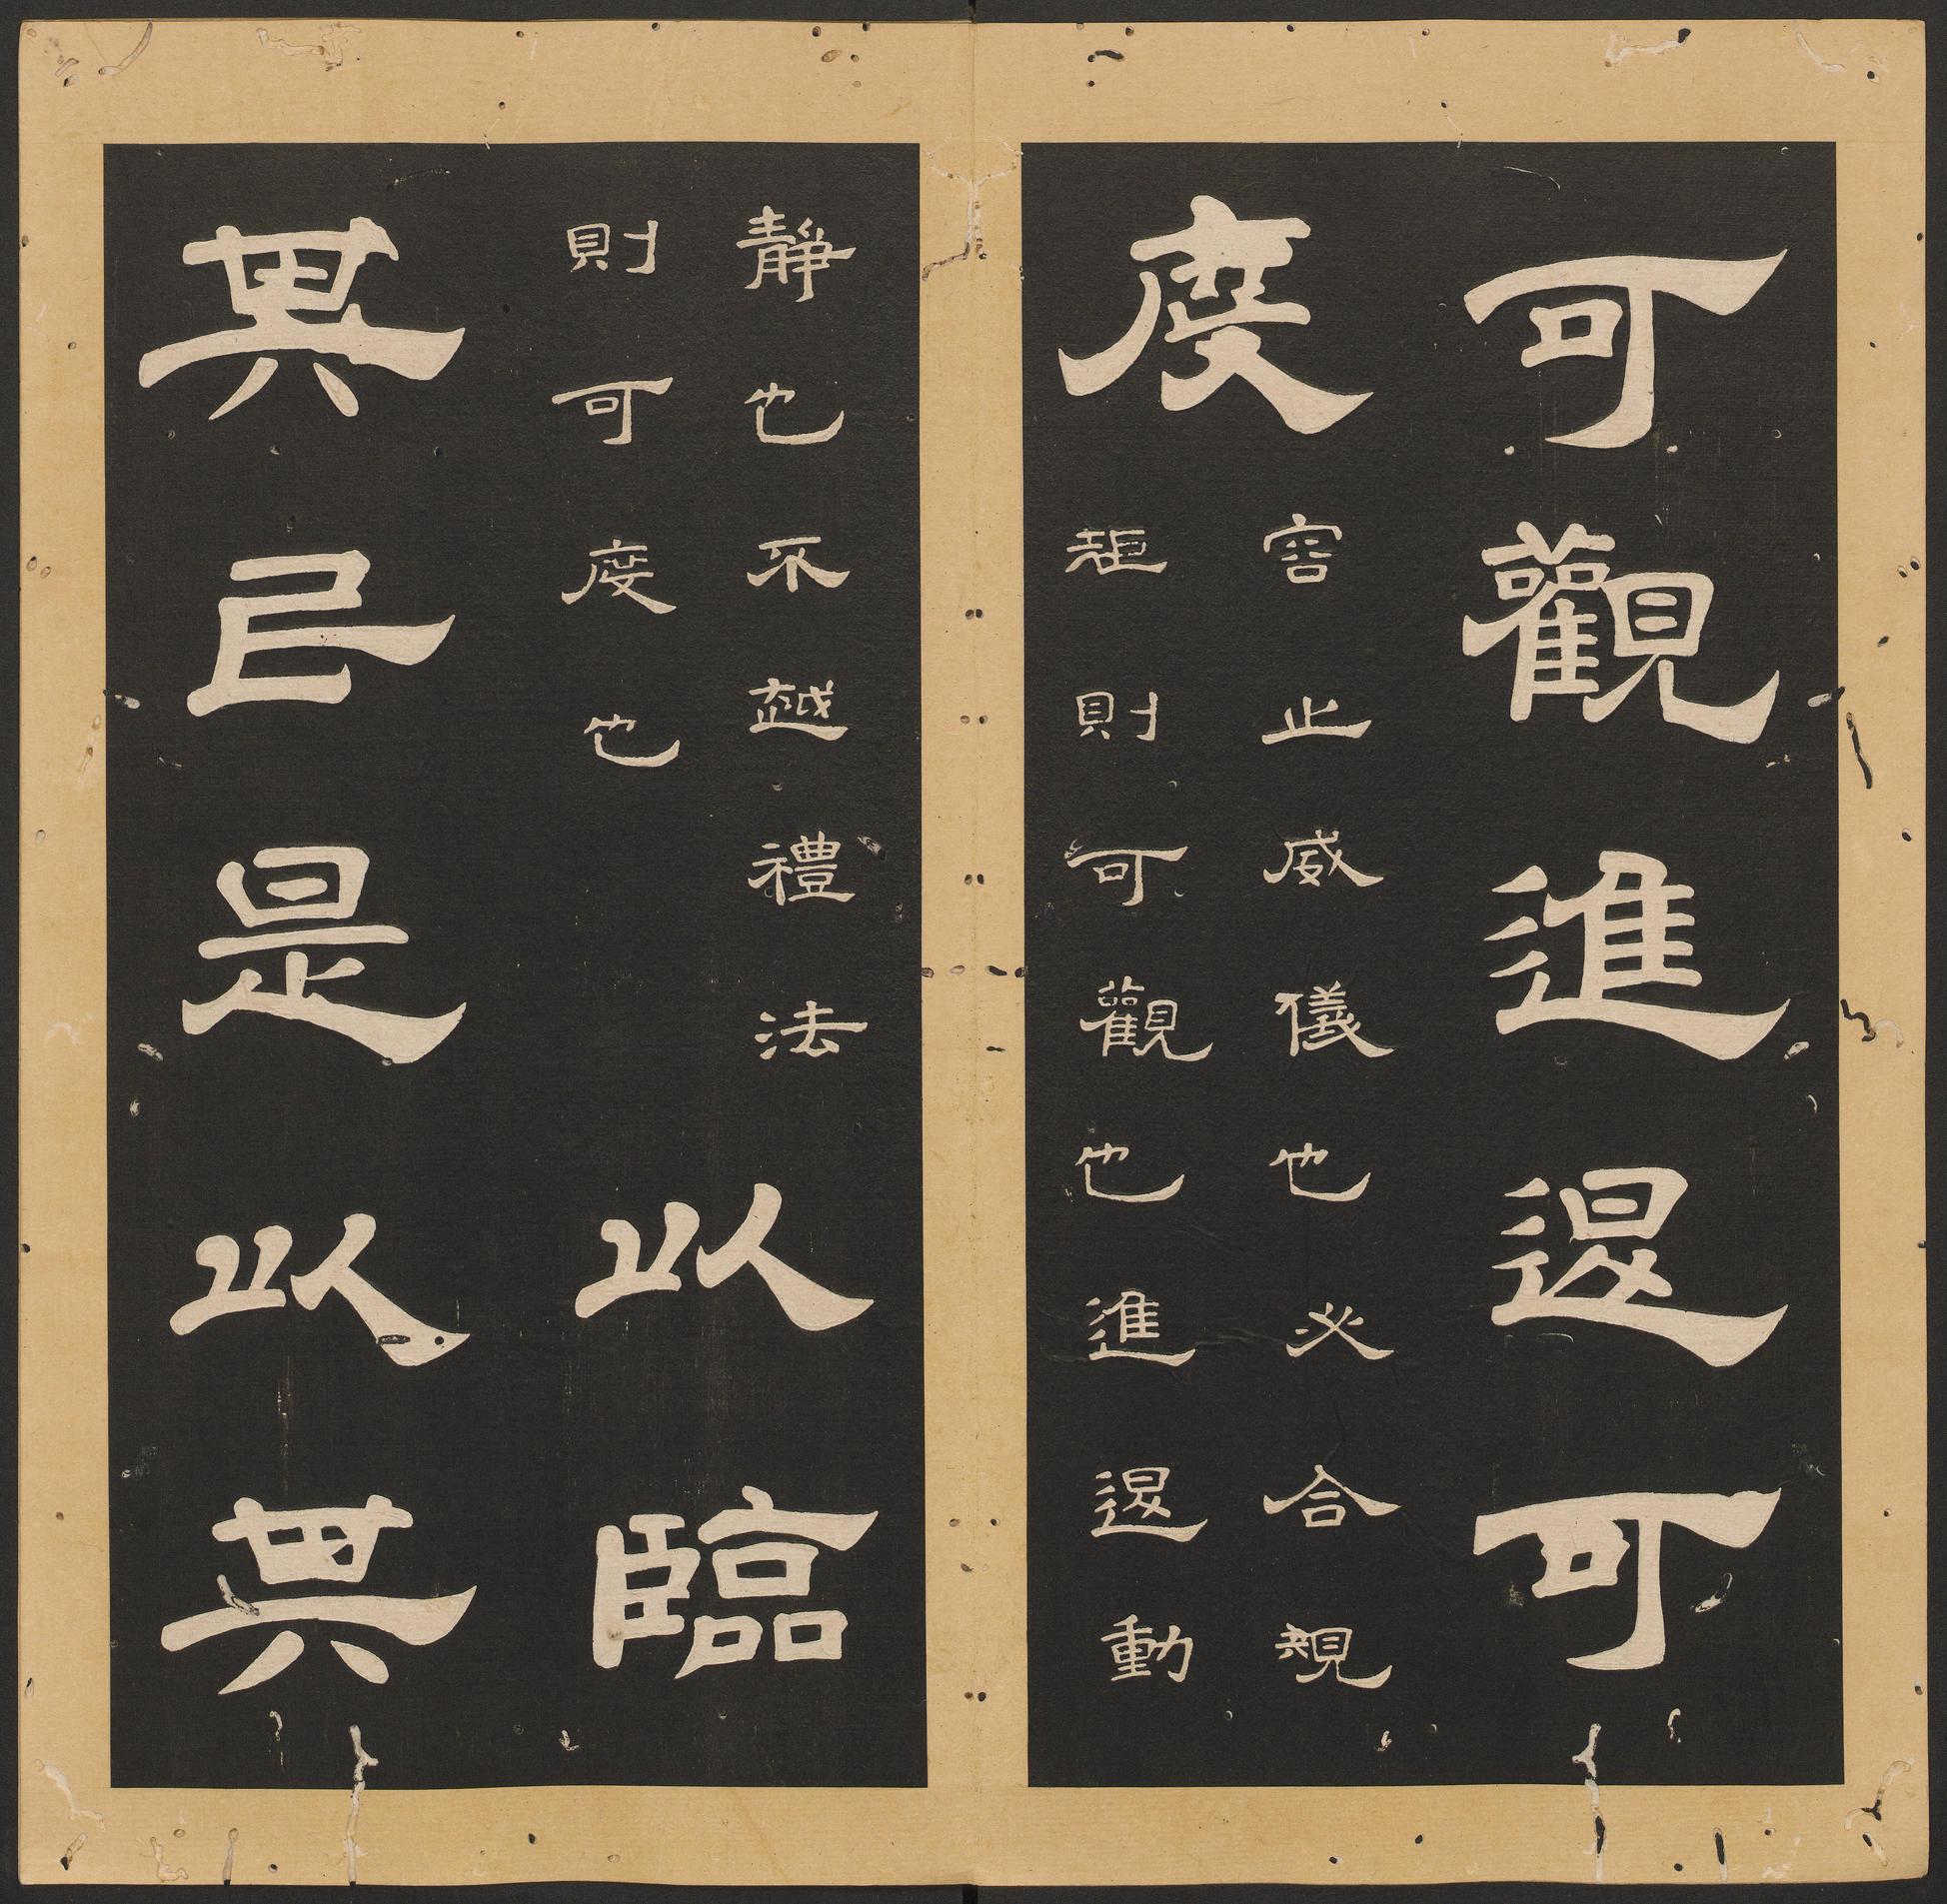 可觀進退可
度
容止威儀也必合規
矩則可觀也進退動
靜也不越禮法
則可度也
以臨
其民是以其